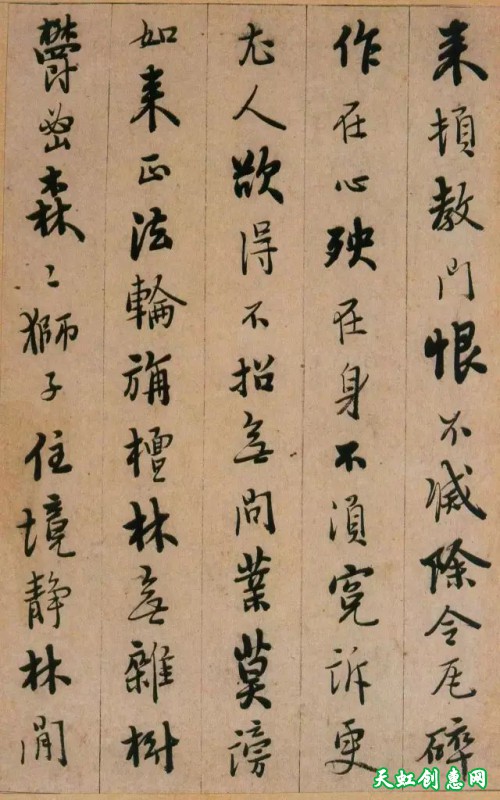 来頓教門恨不滅除令瓦碎
作在心殃在身不須寃訴更
尤人欲得不招無間業莫謗
如来正法輪旃檀林無雜樹
鬱密森〻獅子住境静林間
天虹创惠网